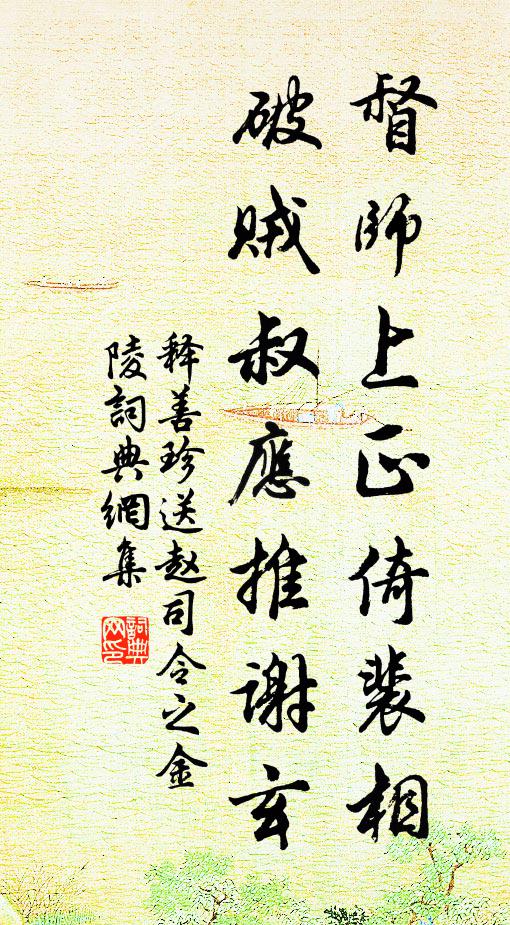 督師上正倚裴相
破賊叔應推謝玄
释善珍送赵司令之金
陵詞典網集
詞典網印